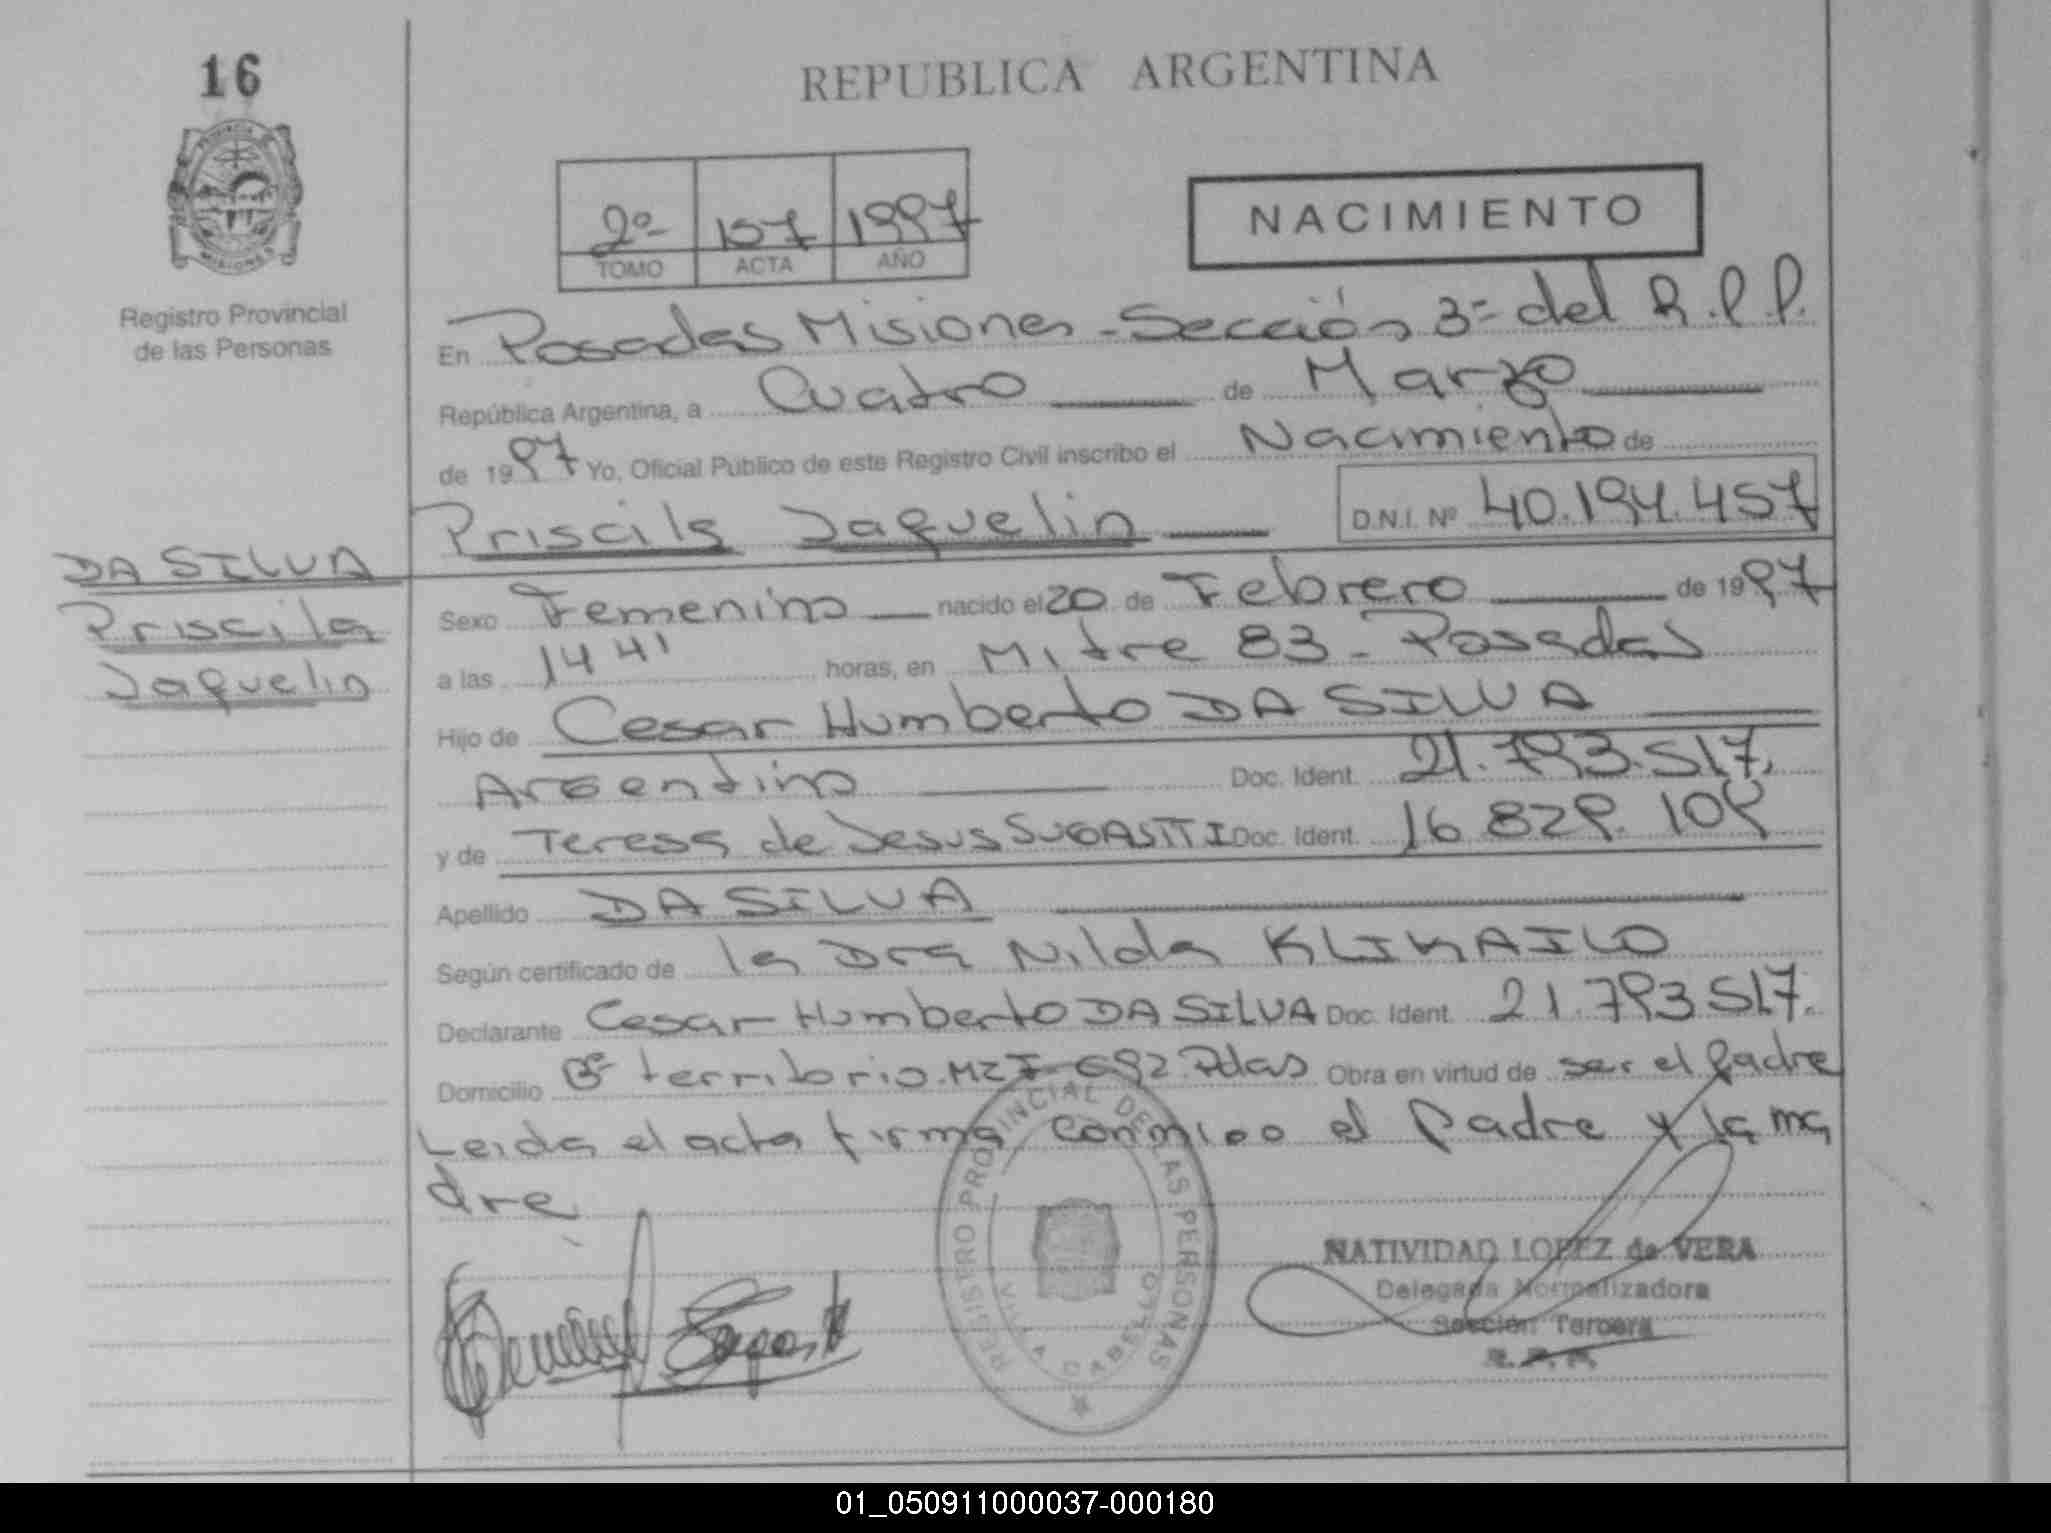 16
REPUBLICA ARGENTINA
PROVINCIA
MISIONES
Registro Provincial
de las Personas
2º 157 1997
TOMO ACTA AÑO
NACIMIENTO
En Posadas Misiones - Sección 3ª del R.P.P.
República Argentina, a Cuatro de Marzo
de 1997 Yo, Oficial Público de este Registro Civil inscribo el Nacimiento de
Priscila Jaquelin D.N.I. Nº 40.194.457
DA SILVA
Priscila
Jaquelin
Sexo Femenino nacido el 20 de Febrero de 1997
a las 14 41 horas, en Mitre 83 - Posadas
Hijo de Cesar Humberto DA SILVA
Argentino Doc. Ident. 21.793.517.
y de Teresa de Jesus Doc. Ident. 16 829. 109
Apellido DA SILVA
Según certificado de la Dra Nilda
Declarante Cesar Humberto DA SILVA Doc. Ident. 21.793 517.
Domicilio territorio. MZ I 692 Pdas Obra en virtud de ser el padre
Leida el acta firma conmigo el Padre y la ma
dre
REGISTRO PROVINCIAL DE LAS PERSONAS
VILLA CABELLO
NATIVIDAD LOPEZ de VERA
Delegada Normalizadora
Sección Tercera
R. P. P.
01_050911000037-000180